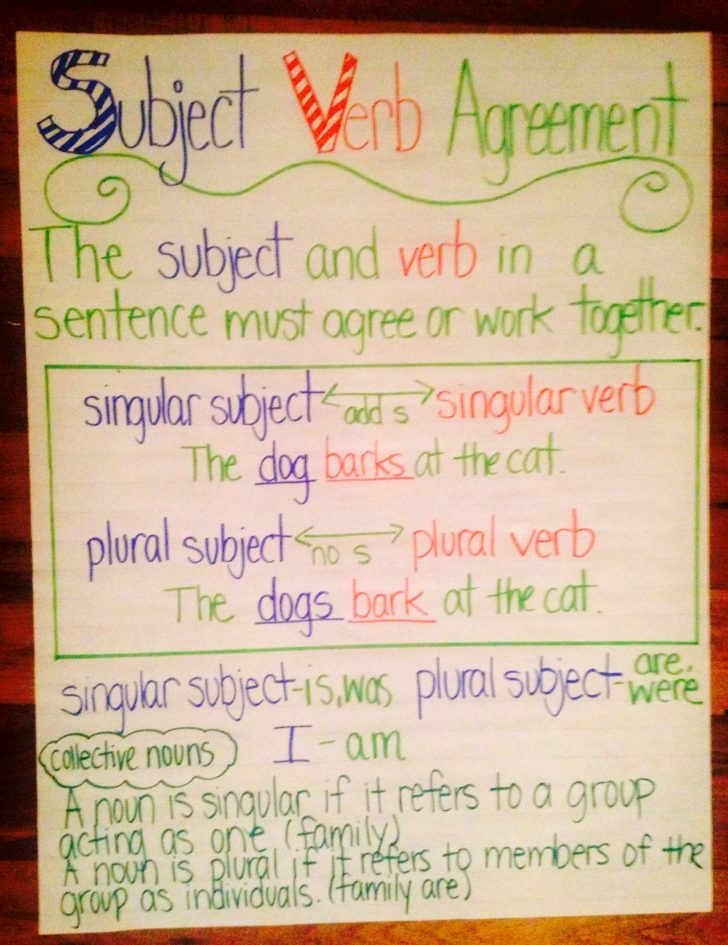 Subject Verb Agreement
The subject and verb in a
sentence must agree or work together.
singular subject ←add s→ singular verb
The dog barks at the cat.
plural subject ←no s→ plural verb
The dogs bark at the cat.
singular subject-is, was plural subject-are, were
collective nouns I - am
A noun is singular if it refers to a group
acting as one (family)
A noun is plural if it refers to members of the
group as individuals. (family are)